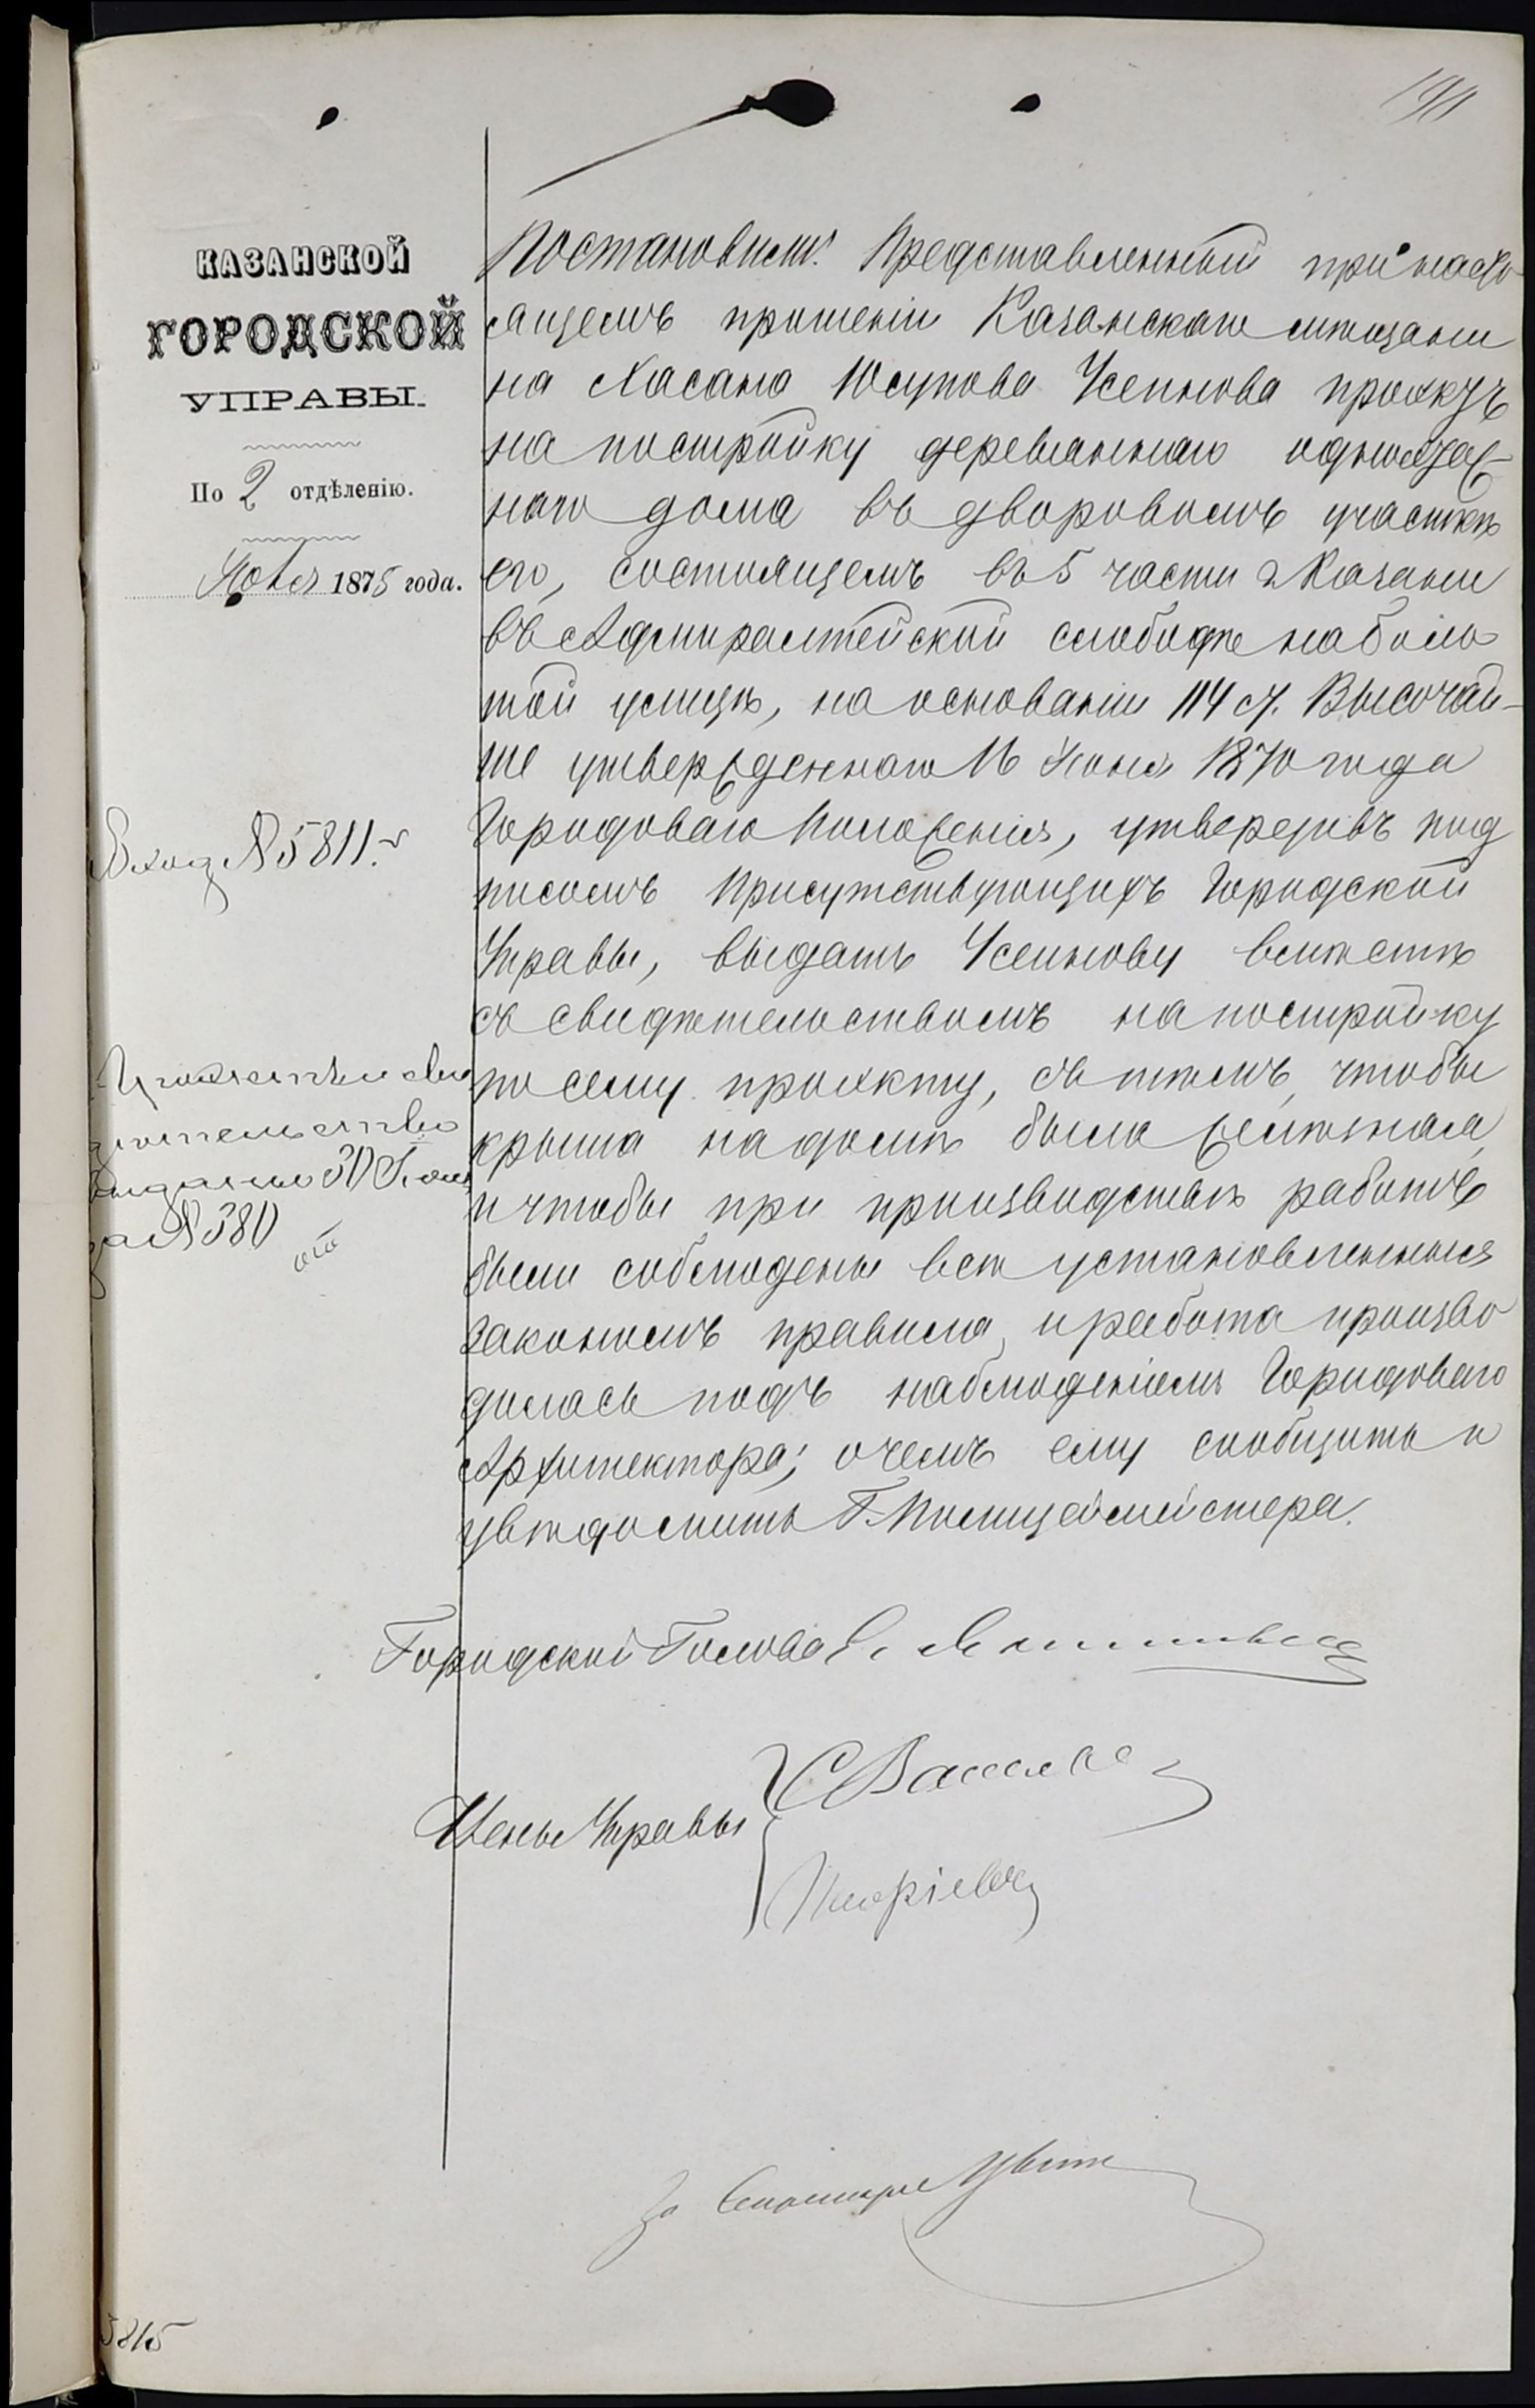 190
КАЗАНСКОЙ
ГОРОДСКОЙ
УПРАВЫ.
По 2 отдѣленію.
Іюня 1875 года.
Постановили: Представленный при насто
ящемъ прошеніи Казанскаго мѣщани
на Хасана Юсупова Усеинова проэктъ
на постройку деревяннаго одноэтаж-
наго дома въ дворовомъ участкѣ
его, состоящемъ въ 5 части г. Казани
въ Адмиралтейской слободѣ на боль
шой улицѣ, на основаніи 114 ст. Высочай-
ше утвержденнаго 16 Іюня 1870 года
Городоваго Положенія, утвердивъ под
писомъ Присутствующихъ Городской
Управы, выдать Усеинову вмѣстѣ
съ свидѣтельствомъ на постройку
по сему проэкту, съ тѣмъ, чтобы
крыша на домѣ была желѣзная,
и чтобы при производствѣ работъ
были соблюдены всѣ установленныя
закономъ правила, и работа произво
дилась подъ наблюденіемъ Городоваго
Архитектора; о чемъ ему сообщить и
увѣдомить Г. Полицеймейстера.
Вход № 5811.
свидѣтельство
выдано 30 Іюня
за № 380
Городской Голова
Члены Управы
С Васильев
За Секретаря
5815